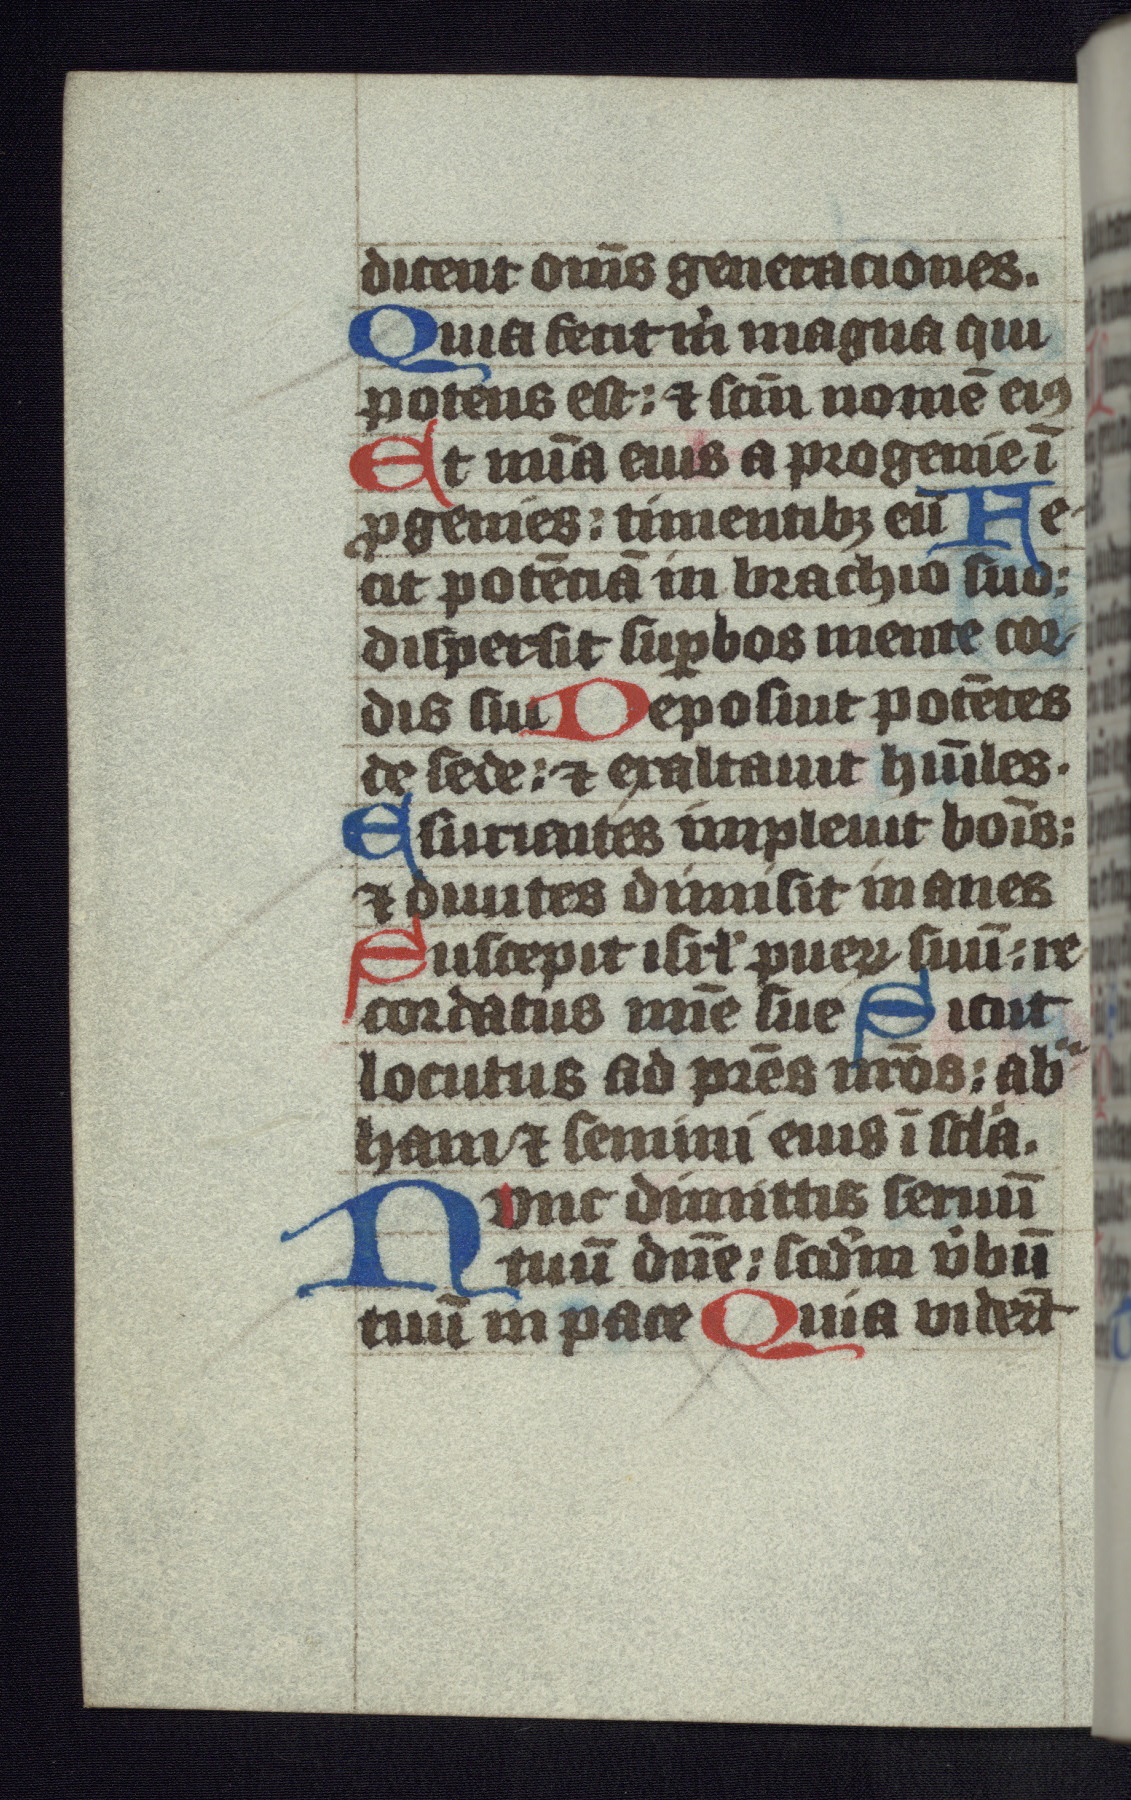 dicent om̄s generaciones.
Quia fecit m̄ magna qui
potens est: ⁊ scm̄ nomē eiꝰ
Et mīa eius a progenie ī
ꝓgenies: timentibꝫ eū Fe-
cit potēciā in brachio suo:
dispersit suꝑbos mente cor-
dis sui Deposuit potētes
de sede: ⁊ exaltauit hūiles.
Esurientes impleuit boīs:
⁊ diuites dimisit inanes
Suscepit isrl̓ pueꝝ suū: re
cordatus mīe sue Sicut
locutus ad pr̄es nr̄os: ab
ham ⁊ semini eius ī scl̓a.
Nvnc dimittis seruū
tuū dn̄e: scd̓m v̓bū
tuū in pace Quia vider̄t